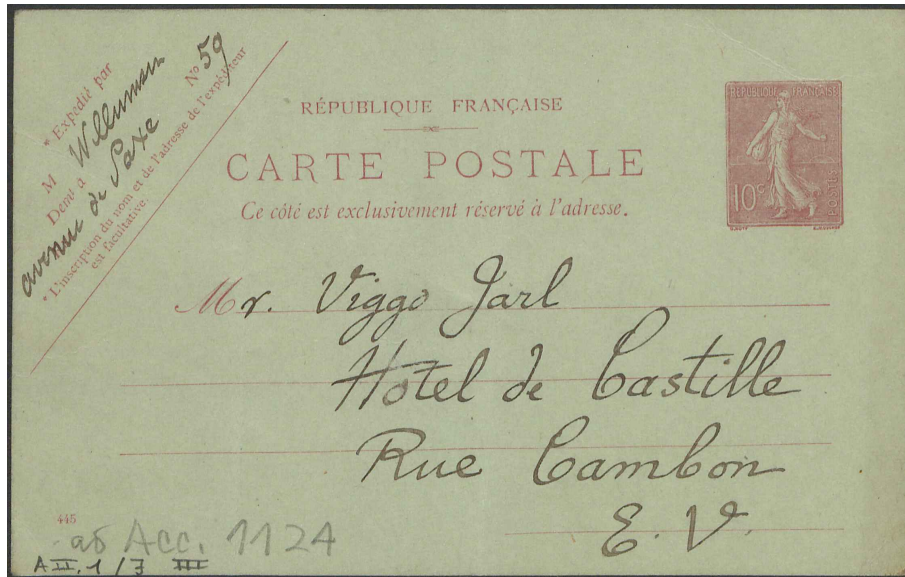 * Expédié par
M Willumsen
Demt à avenue de Saxe No 59
* L'inscription du nom et de l'adresse de l'expéditeur
est facultative.
RÉPUBLIQUE FRANÇAISE
CARTE POSTALE
Ce côté est exclusivement réservé à l'adresse.
RÉPUBLIQUE FRANÇAISE
10c
POSTES
Mr. Viggo Jarl
Hôtel de Castille
Rue Cambon
E. V.
445
ad Acc. 1124
A II. 1 / 7 III